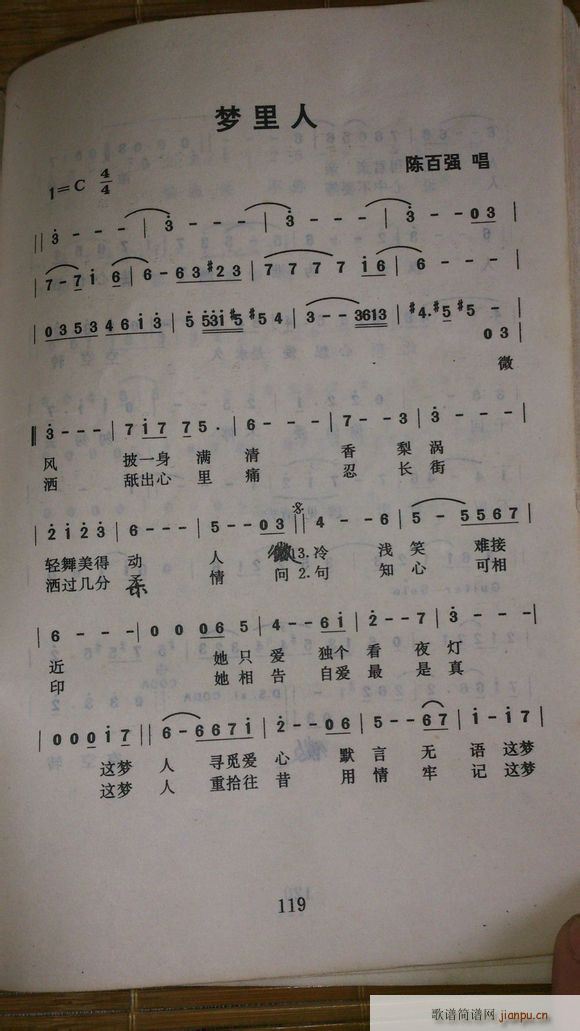 梦里人
陈百强 唱
1=C 4/4
‖ 3̇ - - - | 3̇ - - - | 3̇ - - - | 3̇ - - 0 3 |
| 7 - 7 i 6 | 6 - 6 3 #2 3 | 7 7 7 7 i 6 | 6 - - - |
| 0 3 5 3 4 6 i 3̇ | 5̇ 5̇3̇i #5 #5 4 | 3 - - 3613 | #4. #5 #5 -
0 3 |
微
‖ 3̇ - - - | 7 i 7 7 5. | 6 - - - | 7 - - 3 | 3̇ - - - |
风 披一身 满 清 香 梨 涡
洒 舐出心 里 痛 忍 长 街
| 2̇ i 2̇ 3̇ | 6 - - - | 5 - - 0 3 ‖ 4 - - 6 | 5 - 5 5 6 7 |
轻舞美得 动 人 微 3.冷 浅 笑 难接
洒过几分 柔 情 问 2.句 知 心 可相
| 6 - - - | 0 0 0 6 5 | 4 - - 6 i | 2̇ - - 7 | 3̇ - - - |
近 她只 爱 独个 看 夜 灯
印 她相 告 自爱 最 是 真
| 0 0 0 i 7 ‖ 6 - 6 6 7 i | 2̇ - - 0 6 | 5 - - 6 7 | i - i 7 |
这梦 人 寻觅爱 心 默 言 无 语 这梦
这梦 人 重拾往 昔 用 情 牢 记 这梦
119
歌谱简谱网
jianpu.cn